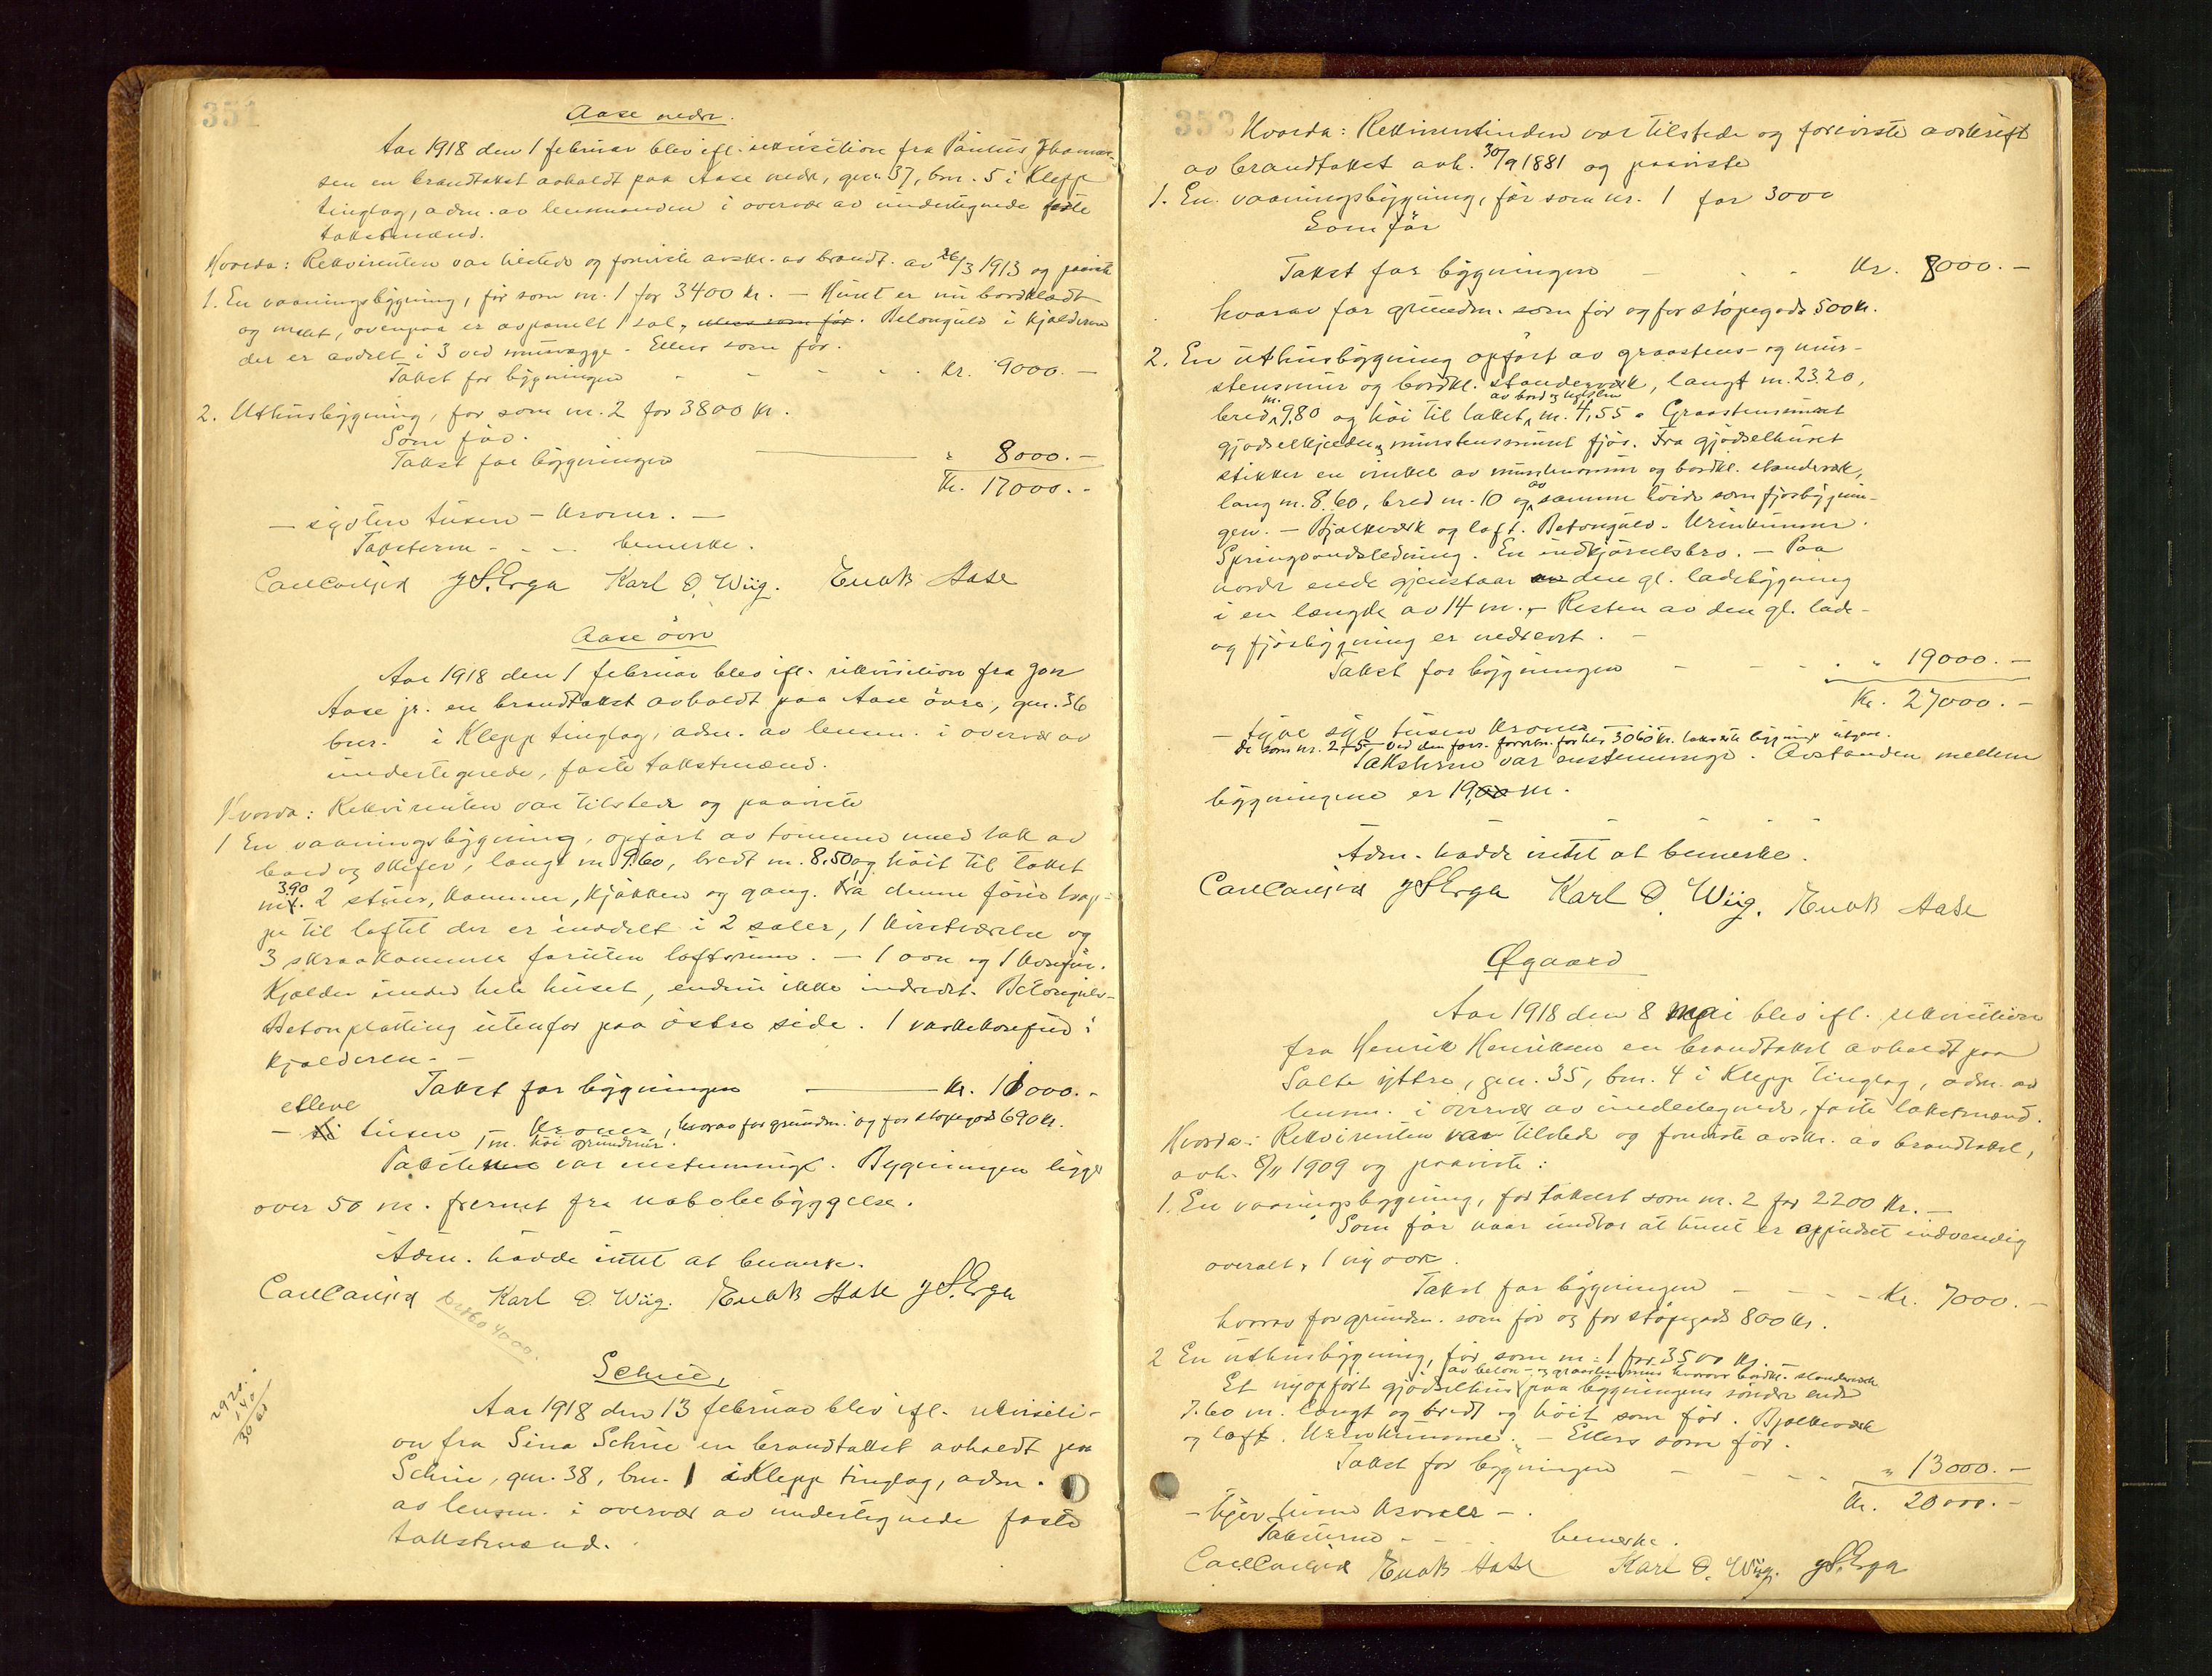 351
Aase nedre.
Aar 1918 den 1 februar blev ifl. rekvisition fra Paulus Thomas-
sen en brandtakst avholdt paa Aase nedre, gnr. 37, bnr. 5 i Klepp
tinglag, adm. av lensmanden i overvær av undertegnede faste
takstmænd.
Hvorda: Rekvirenten var tilstede og foreviste avskr. av brandt. av 26/3 1913 og paaviste
1. En vaaningsbygning, før som nr. 1 for 3400 kr. - Huset er nu bordklædt
og malt, ovenpaa er avpanelt 1 sal, ellers som før. Betongulv i kjælderen
der er avdelt i 3 ved murvægge. Ellers som før.
Takst for bygningen - - - - kr. 9000. -
2. Uthusbygning, før som nr. 2 for 3800 kr.
Som før.
Takst for bygningen " 8000. -
Kr. 17000. -
- sytten tusen - kroner. -
Taksterne - - - bemerke.
J S. Erga Karl O. Wiig. Enok Aase
Aase övre
Aar 1918 den 1 februar blev ifl. rekvisition fra Jon
Aase jr. en brandtakst avholdt paa Aase övre, gnr. 36
bnr. i Klepp tinglag, adm. av lensm. i overvær av
undertegnede, faste takstmænd.
Hvorda: Rekvirenten var tilstede og paaviste
1 En vaaningsbygning, opført av tømmer med tak av
bord og skifer, langt m. 9.60, bredt m. 8.50 og høit til taket
m. 3.90. 2 stuer, kammer, kjøkken og gang. Fra denne fører trap-
pe til loftet der er inddelt i 2 saler, 1 kvistværelse og
3 skraakammer foruten loftsrum. - 1 ovn og 1 komfur.
Kjælder under hele huset, endnu ikke indredet. Betongulv.
Betonplatting utenfor paa østre side. 1 vaskekomfur i
kjælderen. -
Takst for bygningen kr. 11000. -
- elleve ti tusen - kroner, hvorav for grundm. og for støpegods 690 kr.
1 m. høi grundmur.
Taksterne var enstemmige. Bygningen ligger
over 50 m. fjernet fra nabobebyggelse.
Adm. hadde intet at bemerke.
Karl O. Wiig. Enok Aase J S. Erga
4000.
2920.-
140
3060
Schrie,
Aar 1918 den 13 februar blev ifl. rekvisiti-
on fra Sina Schrie en brandtakst avholdt paa
Schrie, gnr. 38, bnr. 1 i Klepp tinglag, adm.
av lensm. i overvær av undertegnede faste
takstmænd.
352
Hvorda: Rekvirentinden var tilstede og foreviste avskrift
av brandtakst avh. 30/9 1881 og paaviste
1. En vaaningsbygning, før som nr. 1 for 3000
Som før
Takst for bygningen - - - Kr. 8000. -
hvorav for grundm. som før og for støpegods 500 kr.
2. En uthusbygning opført av graastens- og mur-
stensmur og bordkl. standerverk, langt m. 23.20,
bred m. 9,80 og høi til taket, av bord og m. 4,55. Graastensmuret
gjødselkjelder, murstensmuret fjøs. Fra gjødselhuset
stikker en vinkel av murstensmur og bordkl. standerverk,
lang m. 8.60, bred m. 10 og av samme høide som fjøsbygnin-
gen. - Bjælkeverk og loft. Betongulv. Urinkummer.
Springvandsledning. En indkjørselsbro. - Paa
nordre ende gjenstaar av den gl. ladebygning
i en længde av 14 m. - Resten av den gl. lade-
og fjøsbygning er nedrevet. -
Takst for bygningen - - - - " 19000. -
Kr. 27000. -
- tyve syv tusen kroner
De som nr. 2-5 ved den forr. forretn. for tils. 3060 kr. takserte bygninger utgaar.
Taksterne var enstemmige. Avstanden mellem
bygningene er 19,00 m.
Adm. hadde intet at bemerke.
J S. Erga Karl O. Wiig. Enok Aase
Øgaard
Aar 1918 den 8 mai blev ifl. rekvisition
fra Henrik Henriksen en brandtakst avholdt paa
Salte yttre, gnr. 35, bnr. 4 i Klepp tinglag, adm. av
lensm. i overvær av undertegnede, faste takstmænd.
Hvorda: Rekvirenten var tilstede og foreviste avskr. av brandtakst,
avh. 8/11 1909 og paaviste:
1. En vaaningsbygning, før taksert som nr. 2 for 2200 Kr. -
Som før naar undtas at huset er oppudset indvendig
overalt, 1 ny ovn.
Takst for bygningen - - - - Kr. 7000. -
hvorav for grundm. som før og for støpegods 800 kr.
2 En uthusbygning, før som nr. 1 for 3500 kr. -
Et nyopført gjødselhus av beton- og graastensmur hvorover bordkl. standerverk paa bygningens søndre ende
7.60 m. langt og bredt og høit som før. Bjælkeverk
og loft. Urinkumme. - Ellers som før.
Takst for bygningen - - - - " 13000. -
Kr. 20000. -
- tyve tusen kroner -.
Taksterne - - - bemerke.
Enok Aase Karl O. Wiig. J S. Erga